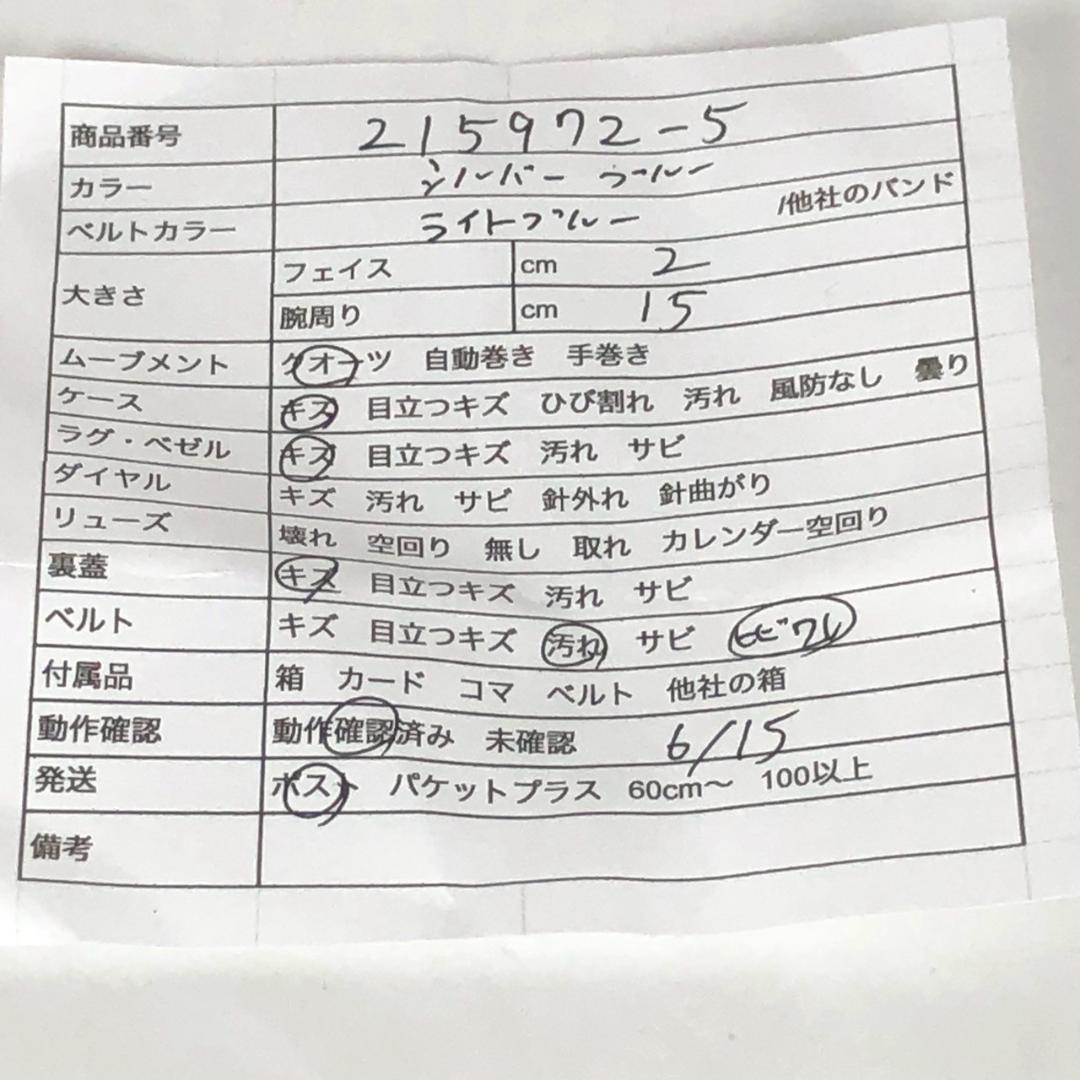 商品番号 215972-5
カラー シルバー ブルー
ベルトカラー ライトブルー /他社のバンド
大きさ フェイス cm 2
腕周り cm 15
ムーブメント クオーツ 自動巻き 手巻き
ケース キズ 目立つキズ ひび割れ 汚れ 風防なし 曇り
ラグ・ベゼル キズ 目立つキズ 汚れ サビ
ダイヤル キズ 汚れ サビ 針外れ 針曲がり
リューズ 壊れ 空回り 無し 取れ カレンダー空回り
裏蓋 キズ 目立つキズ 汚れ サビ
ベルト キズ 目立つキズ 汚れ サビ ヒビワレ
付属品 箱 カード コマ ベルト 他社の箱
動作確認 動作確認済み 未確認 6/15
発送 ポスト パケットプラス 60cm〜 100以上
備考